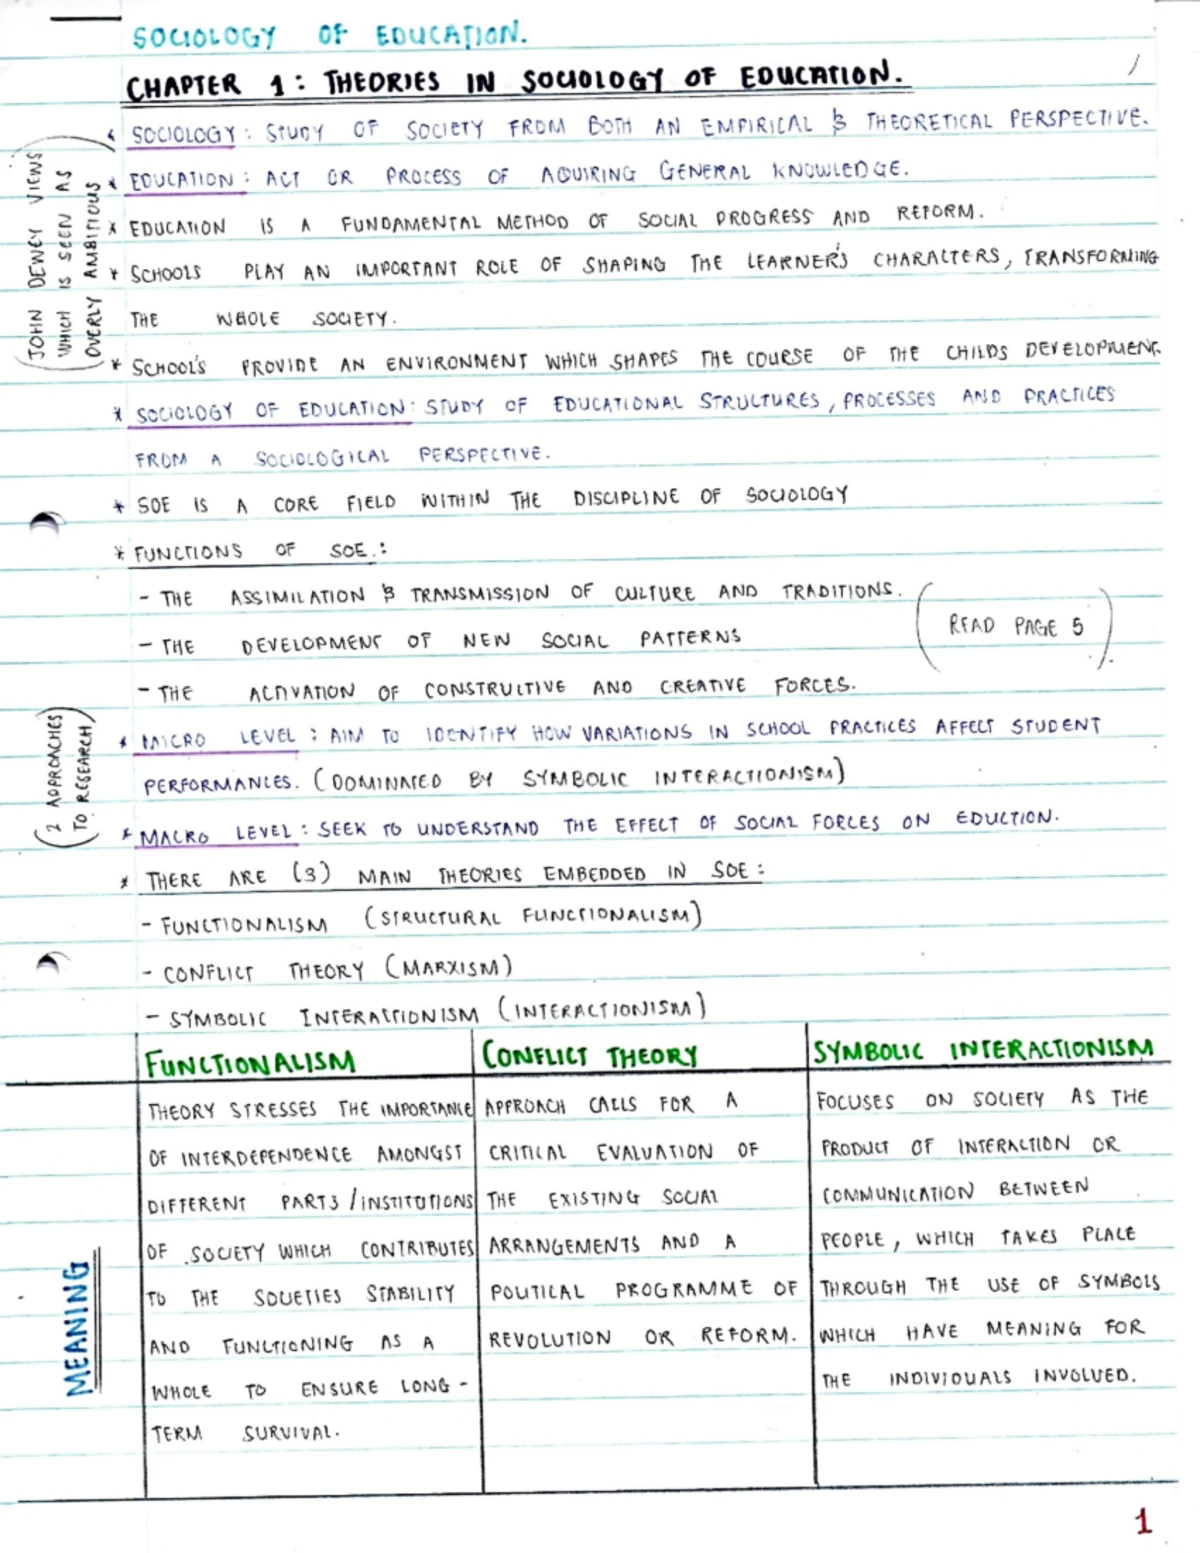 SOCIOLOGY OF EDUCATION.
CHAPTER 1: THEORIES IN SOCIOLOGY OF EDUCATION.
* SOCIOLOGY: STUDY OF SOCIETY FROM BOTH AN EMPIRICAL & THEORETICAL PERSPECTIVE.
* EDUCATION: ACT OR PROCESS OF AQUIRING GENERAL KNOWLEDGE.
* EDUCATION IS A FUNDAMENTAL METHOD OF SOCIAL PROGRESS AND REFORM.
* SCHOOLS PLAY AN IMPORTANT ROLE OF SHAPING THE LEARNER'S CHARACTERS, TRANSFORMING
THE WHOLE SOCIETY.
* SCHOOL'S PROVIDE AN ENVIRONMENT WHICH SHAPES THE COURSE OF THE CHILDS DEVELOPMENT.
(JOHN DEWEY VIEWS
WHICH IS SEEN AS
OVERLY AMBITIOUS)
* SOCIOLOGY OF EDUCATION: STUDY OF EDUCATIONAL STRUCTURES, PROCESSES AND PRACTICES
FROM A SOCIOLOGICAL PERSPECTIVE.
* SOE IS A CORE FIELD WITHIN THE DISCIPLINE OF SOCIOLOGY
* FUNCTIONS OF SOE.:
- THE ASSIMILATION & TRANSMISSION OF CULTURE AND TRADITIONS.
- THE DEVELOPMENT OF NEW SOCIAL PATTERNS
- THE ACTIVATION OF CONSTRUCTIVE AND CREATIVE FORCES.
(READ PAGE 5).
* MICRO LEVEL: AIM TO IDENTIFY HOW VARIATIONS IN SCHOOL PRACTICES AFFECT STUDENT
PERFORMANCES. (DOMINATED BY SYMBOLIC INTERACTIONISM)
* MACRO LEVEL: SEEK TO UNDERSTAND THE EFFECT OF SOCIAL FORCES ON EDUCTION.
(2 APPROACHES
TO RESEARCH)
* THERE ARE (3) MAIN THEORIES EMBEDDED IN SOE:
- FUNCTIONALISM (STRUCTURAL FUNCTIONALISM)
- CONFLICT THEORY (MARXISM)
- SYMBOLIC INTERACTIONISM (INTERACTIONISM)
MEANING
FUNCTIONALISM
THEORY STRESSES THE IMPORTANCE
OF INTERDEPENDENCE AMONGST
DIFFERENT PARTS/INSTITUTIONS
OF SOCIETY WHICH CONTRIBUTES
TO THE SOCIETIES STABILITY
AND FUNCTIONING AS A
WHOLE TO ENSURE LONG-
TERM SURVIVAL.
CONFLICT THEORY
APPROACH CALLS FOR A
CRITICAL EVALUATION OF
THE EXISTING SOCIAL
ARRANGEMENTS AND A
POLITICAL PROGRAMME OF
REVOLUTION OR REFORM.
SYMBOLIC INTERACTIONISM
FOCUSES ON SOCIETY AS THE
PRODUCT OF INTERACTION OR
COMMUNICATION BETWEEN
PEOPLE, WHICH TAKES PLACE
THROUGH THE USE OF SYMBOLS
WHICH HAVE MEANING FOR
THE INDIVIDUALS INVOLVED.
1